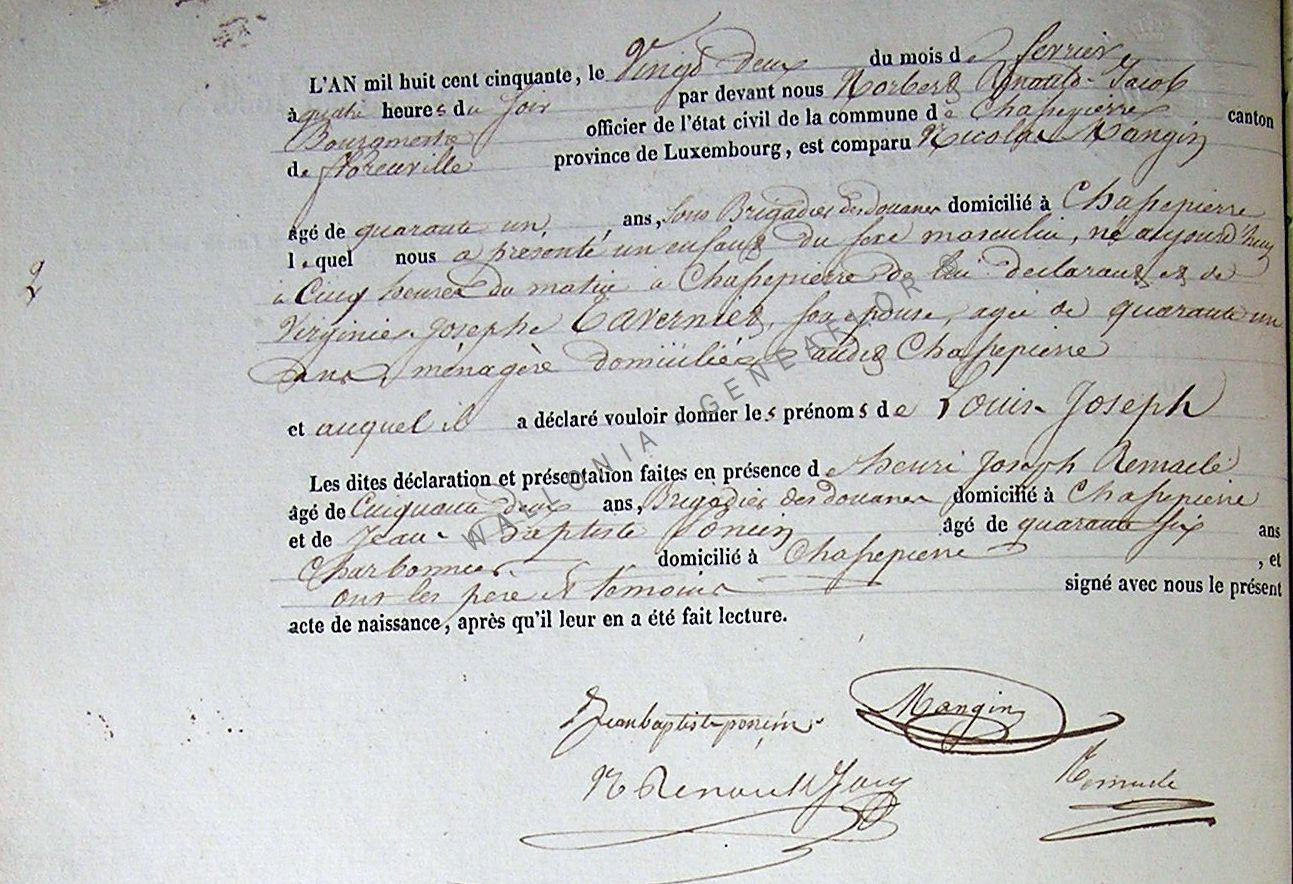 L'AN mil huit cent cinquante, le Vingt deux du mois de fevrier
à quatre heures du soir par devant nous Norbert Renauld-Jacob
Bourgmestre officier de l'état civil de la commune de Chassepierre canton
de florenville province de Luxembourg, est comparu Nicolas Mangin
âgé de quarante un, ans, Sous Brigadier des douanes domicilié à Chassepierre
lequel nous a présenté un enfant du sexe masculin, né aujourd'huy
à Cinq heures du matin à Chassepierre de lui déclarant et de
Virginie-Joseph Tavernier, son épouse, agée de quarante un
ans, ménagère domiciliée audit Chassepierre
et auquel il a déclaré vouloir donner les prénoms de Louis-Joseph
Les dites déclaration et présentation faites en présence de henri Joseph Remacle
âgé de Cinquante deux ans, Brigadier des douanes domicilié à Chassepierre
et de Jean-Baptiste Poncin âgé de quarante six ans
Charbonnier domicilié à Chassepierre, et
ont les père et témoins signé avec nous le présent
acte de naissance, après qu'il leur en a été fait lecture.
2
Jean baptiste poncin Mangin
N Renauld Jacob Remacle
WALLONIA GENEAFLOR